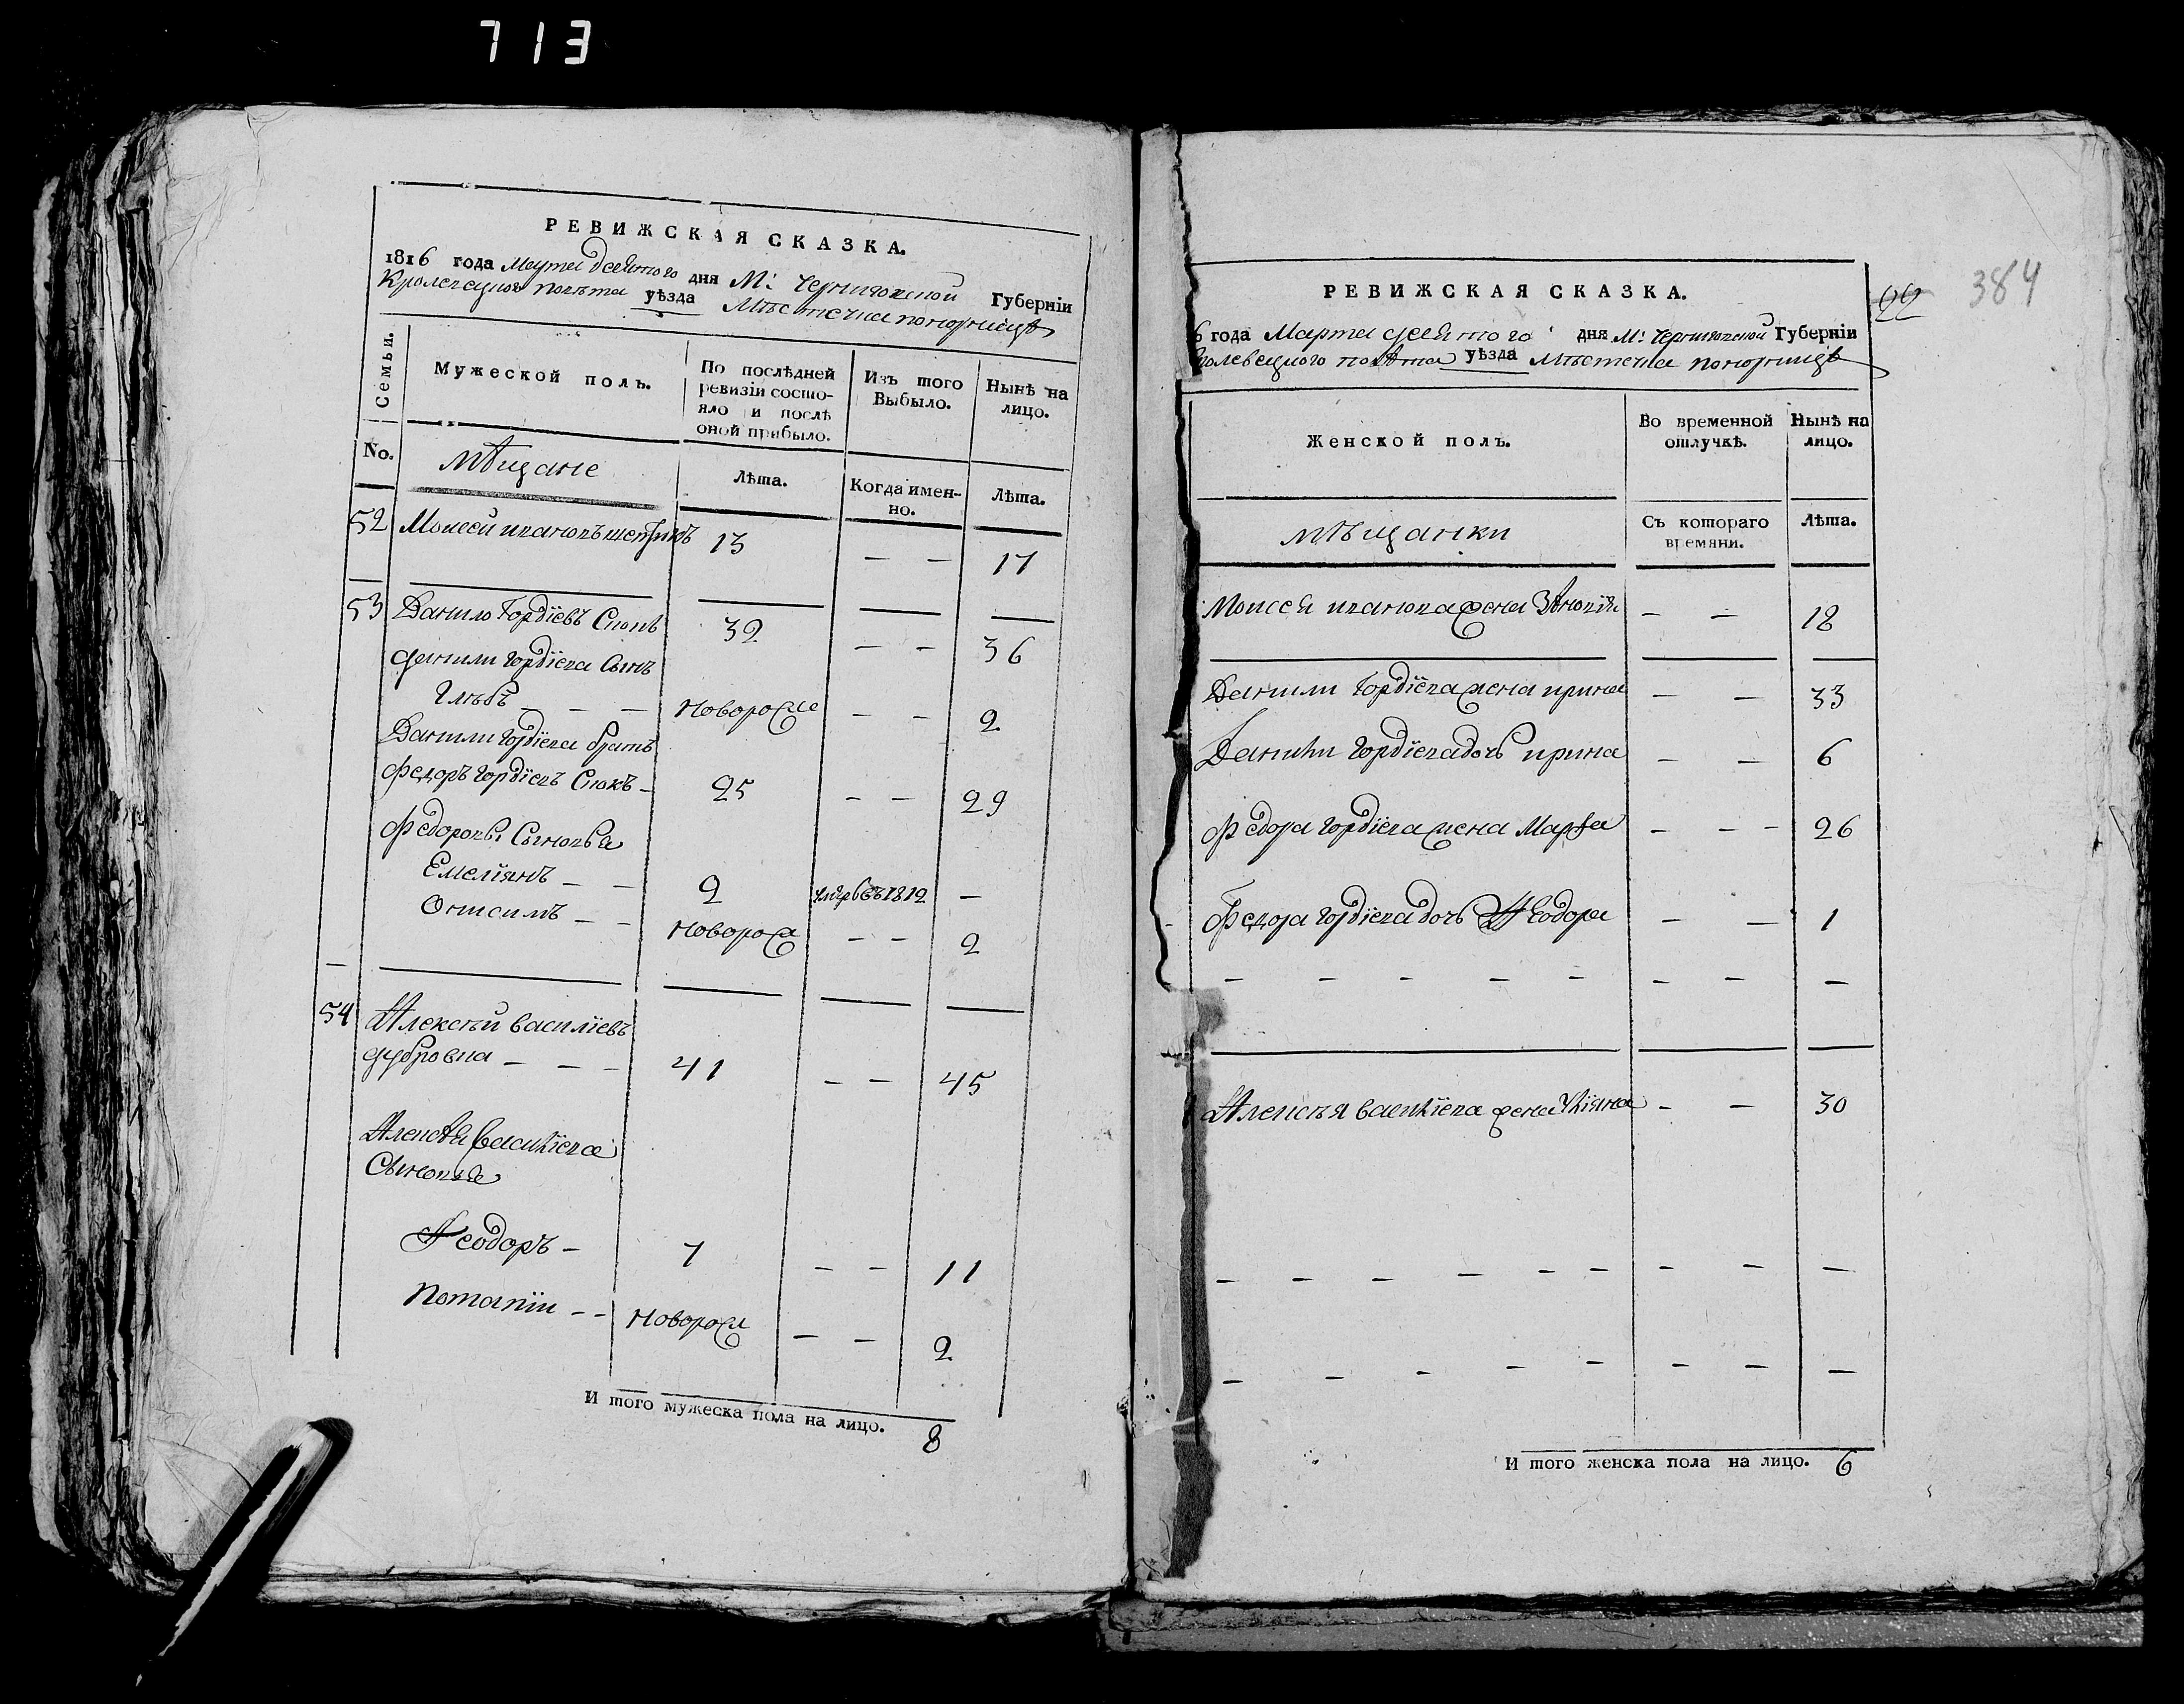 713
РЕВИЖСКАЯ СКАЗКА.
1816 года Марта десятого дня М: Черниговской Губерніи
Кролевецкого повѣта уѣзда Мѣстечка понорницѣ
Семьи. Мужеской полъ. По послѣдней ревизіи состояло и послѣ оной прибыло. Изъ того Выбыло. Нынѣ на лицо.
No. мѣщане Лѣта. Когда именно. Лѣта.
52 Моисей ивановъ 13 — — 17
53 Данило Гордіевъ 32 — — 36
данили Гордіева Сынъ
Глѣбъ — — — Новорож — — 2
Данили Гордіева братъ
Федоръ Гордіевъ — 25 — — 29
Федоровы Сыновья
Емеліянъ — — 2 1812 —
Онисимъ — — Новорож — — 2
54 Алексѣй василіевъ
дубровка — — — 41 — — 45
Алексѣя василіева
Сыновья
Ѳеодоръ — 7 — — 11
Потапїи — — Новорож — — 2
И того мужеска пола на лицо. 8
384
99
РЕВИЖСКАЯ СКАЗКА.
6 года Марта десятого дня М: Черниговской Губерніи
ролевецкого повѣта уѣзда Мѣстечка понорницѣ
Женской полъ. Во временной отлучкѣ. Нынѣ на лицо.
мѣщанки Съ котораго времяни. Лѣта.
Моисея иванова жена — — 18
Данили Гордіева жена ирина — — 33
Данили Гордіева дочь ирина — — 6
Федора Гордіева жена Марѳа — — — 26
Федора Гордіева дочь Ѳеодора — — 1
— — — — — — — —
Алексѣя василіева жена Уліяна — — 30
— — — — — — — — —
— — — — — — — —
И того женска пола на лицо. 6